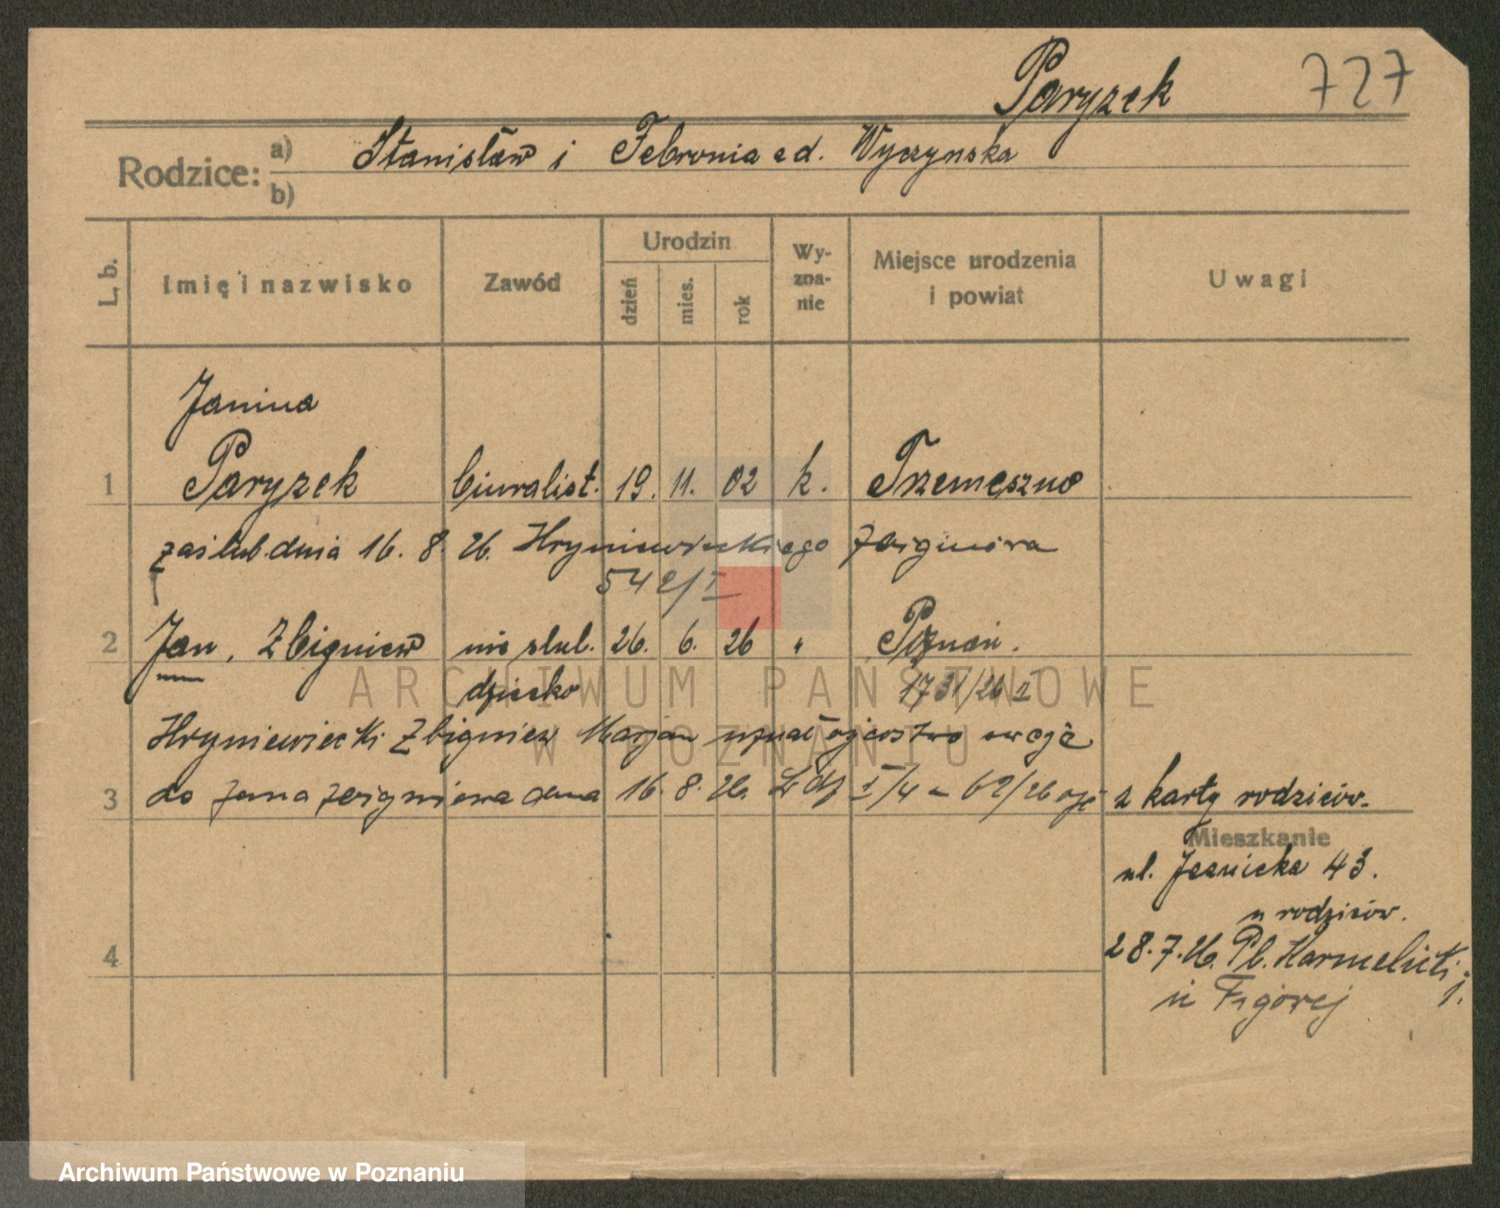 Paryzek 727
Rodzice: a) Stanisław i Febronia ed. Wyczynska
b)
L. b. Imię i nazwisko Zawód Urodzin dzień mies. rok Wy-zna-nie Miejsce urodzenia i powiat Uwagi
Janina
1 Paryzek biuralist. 19. 11. 02 k. Trzemeszno
zaślub. dnia 16. 8. 26. Hryniewieckiego Zbigniewa
542/I
2 Jan, Zbigniew nieślub. 26. 6. 26 " Poznań.
dziecko 1731/26 I
ARCHIWUM PAŃSTWOWE
W POZNANIU
Hryniewiecki Zbigniew Marjan uznał ojcostwo swoje
3 do Jana Zbigniewa dnia 16. 8. 26. I/4 - 62/26 z karty rodziców.
Mieszkanie
ul. 43.
u rodziców.
4 28.7.26. Pl. Karmelicki
Archiwum Państwowe w Poznaniu